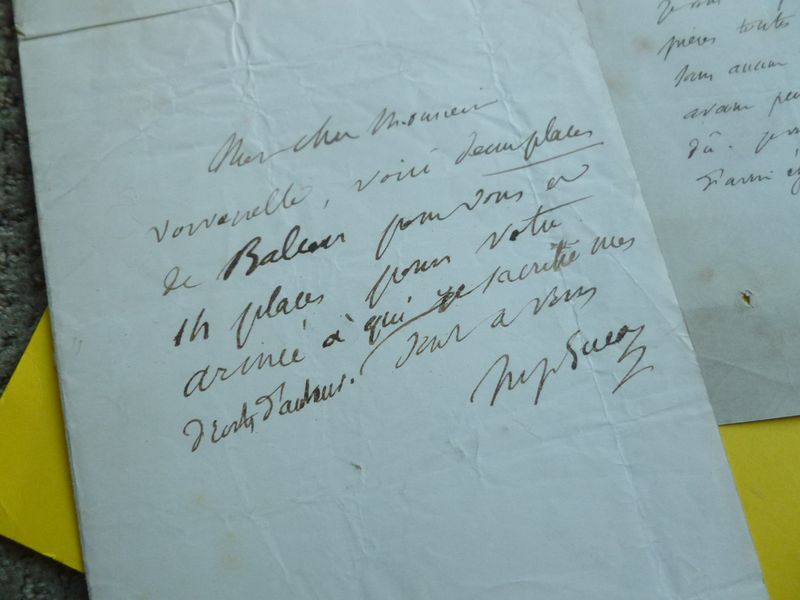 Mon cher Monsieur
, voici deux places
de Balcon pour vous et
14 places pour votre
armée à qui je sacrifie mes
droits d'auteur. Tout à vous
pières toutes
sans aucun
avant
dû.